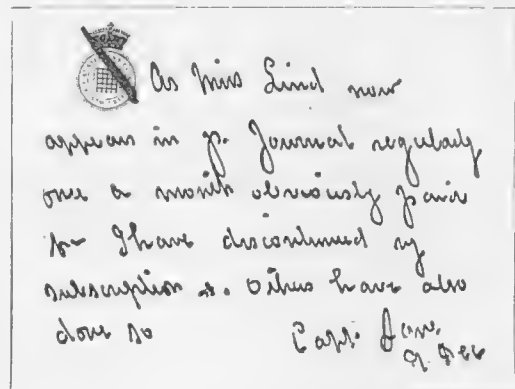 As Miss Lind now
appears in yr. Journal regularly
once a month obviously paid
for I have discontinued my
subscription &. Others have also
done so Capt.
9. Dec